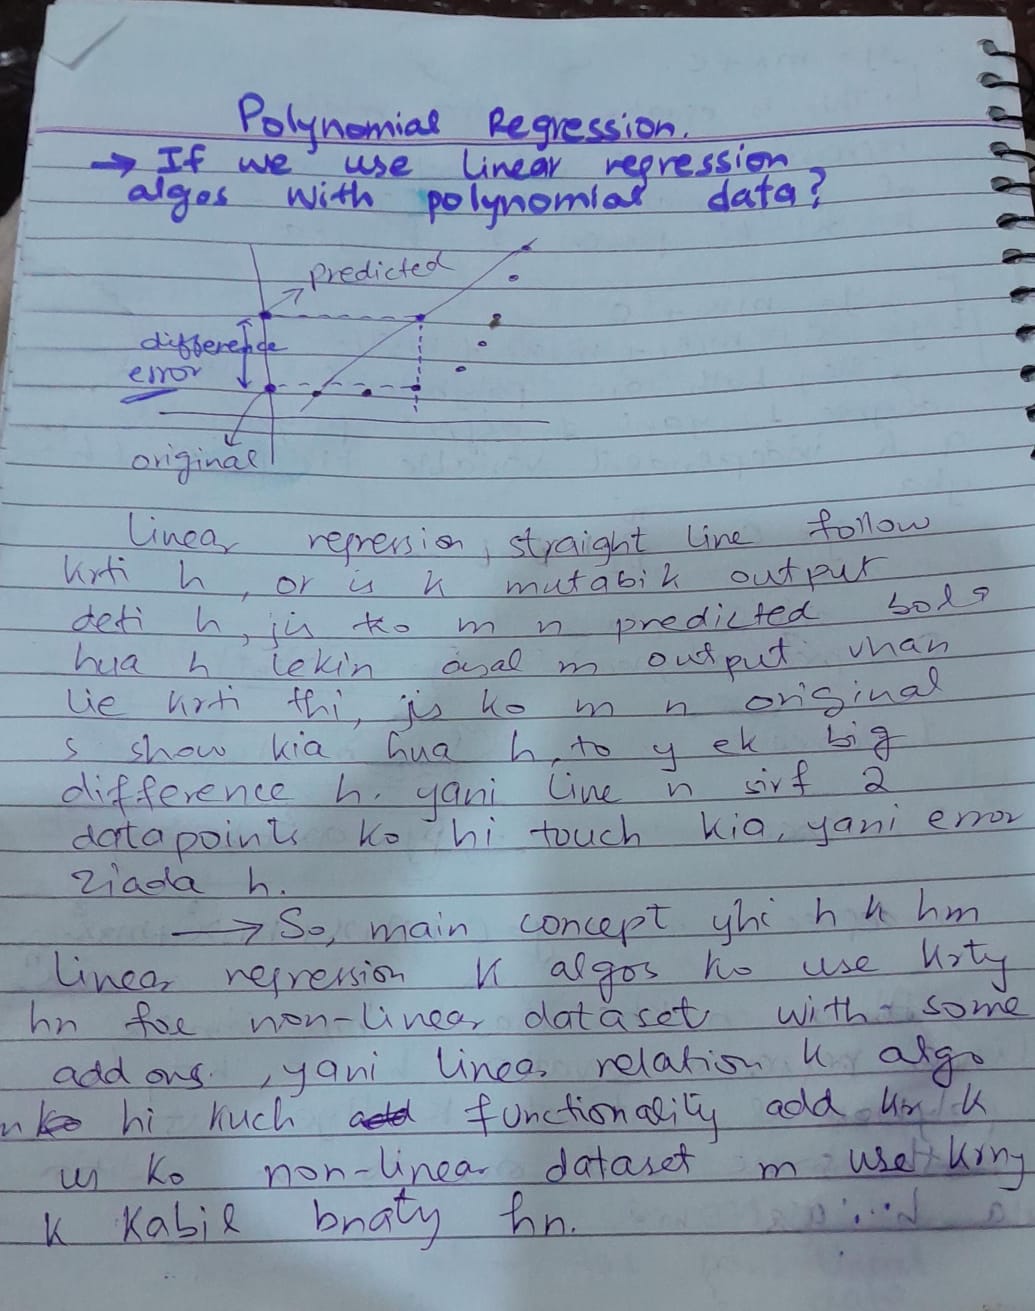 Polynomial Regression.
→ If we use linear regression
algos with polynomial data?
predicted
difference
error
original
linear regression, straight line follow
krti h, or is k mutabik output
deti h, jis ko m n predicted bola
hua h lekin asal m output vhan
lie krti thi, jis ko m n original
s show kia hua h, to y ek big
difference h. yani line n sirf 2
datapoints ko hi touch kia, yani error
ziada h.
→ So, main concept yhi h k hm
linear regression k algos ko use krty
hn foe non-linear dataset with some
add ons, yani linear relation k algo
hi kuch functionality add kr k
us ko non-linear dataset m use krny
k kabil bnaty hn.